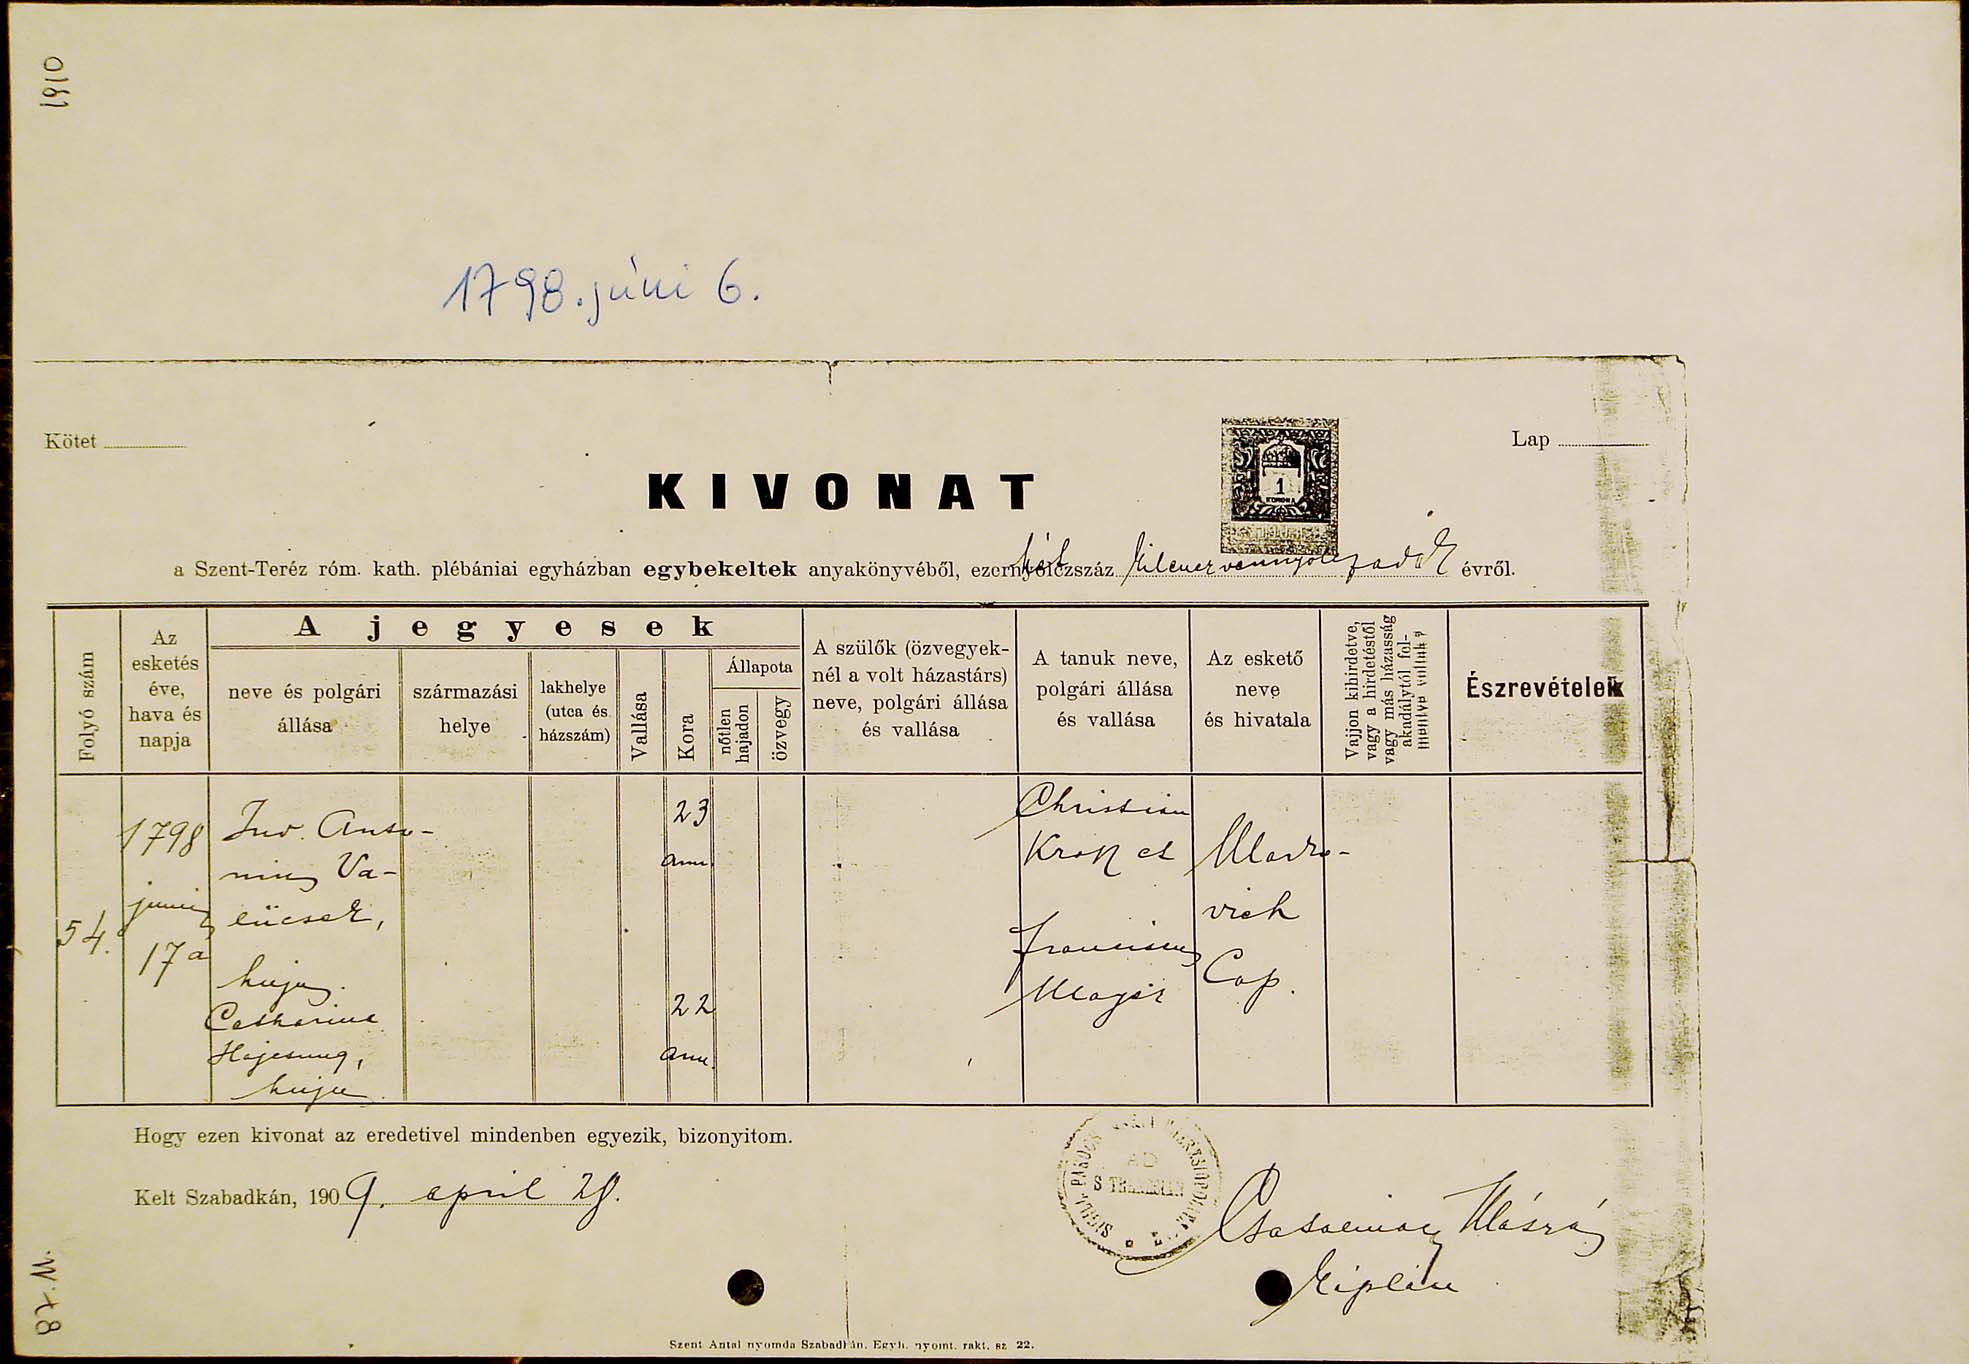 1910
1798. júni 6.
Kötet
Lap
KIVONAT
1
KORONA
a Szent-Teréz róm. kath. plébániai egyházban egybekeltek anyakönyvéből, ezernyolczszáz hét kilenczvennyolczadik évről.
Folyó szám
Az esketés éve, hava és napja
A jegyesek
neve és polgári állása
származási helye
lakhelye (utca és házszám)
Vallása
Kora
Állapota
nőtlen hajadon
özvegy
A szülők (özvegyeknél a volt házastárs) neve, polgári állása és vallása
A tanuk neve, polgári állása és vallása
Az eskető neve és hivatala
Vajjon kihirdetve, vagy a hirdetéstől vagy más házasság akadálytól fel-
Észrevételek
54.
1798
17a
Juv. Anto-
nius Va-
hujus.
Catharina
huju
23
ann.
22
ann.
Christian
et
Franciscus
Cap.
Hogy ezen kivonat az eredetivel mindenben egyezik, bizonyitom.
Kelt Szabadkán, 1909. april 28.
AD
káplán
M. 78
Szent Antal nyomda Szabadkán. Egyh. nyomt. rakt. sz 22.